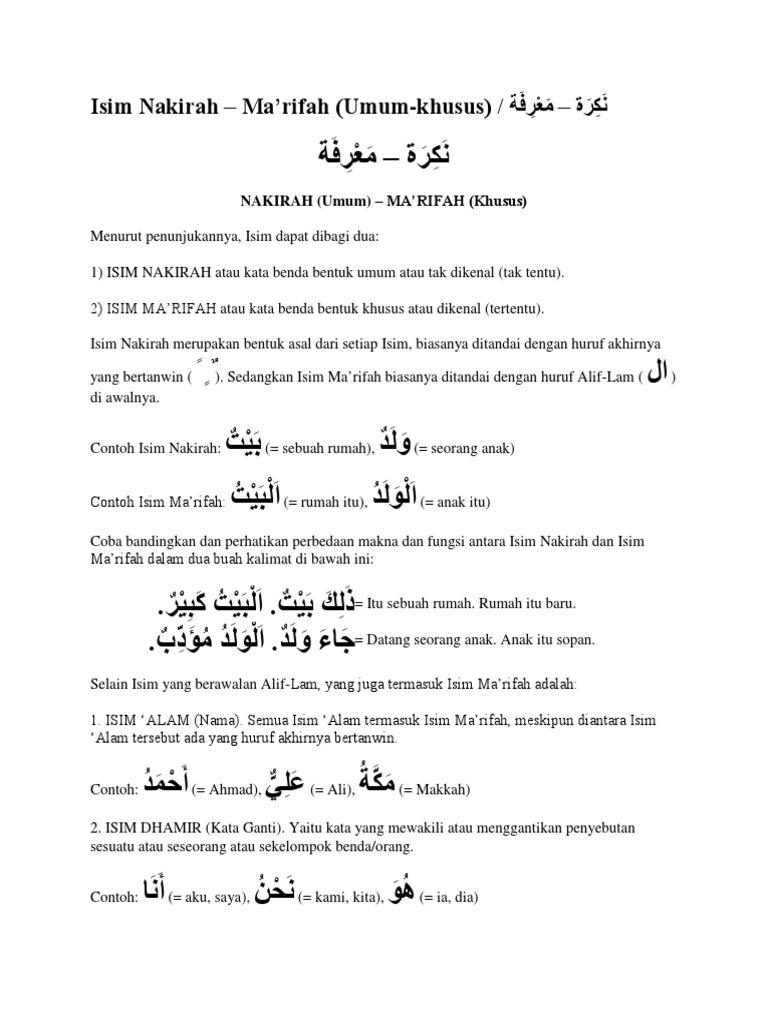 Isim Nakirah – Ma’rifah (Umum-khusus) / نَكِرَة – مَعْرِفَة
نَكِرَة – مَعْرِفَة
NAKIRAH (Umum) – MA’RIFAH (Khusus)
Menurut penunjukannya, Isim dapat dibagi dua:
1) ISIM NAKIRAH atau kata benda bentuk umum atau tak dikenal (tak tentu).
2) ISIM MA’RIFAH atau kata benda bentuk khusus atau dikenal (tertentu).
Isim Nakirah merupakan bentuk asal dari setiap Isim, biasanya ditandai dengan huruf akhirnya
yang bertanwin ( ً ٍ ٌ ). Sedangkan Isim Ma’rifah biasanya ditandai dengan huruf Alif-Lam ( ال )
di awalnya.
Contoh Isim Nakirah: بَيْتٌ (= sebuah rumah), وَلَدٌ (= seorang anak)
Contoh Isim Ma’rifah: اَلْبَيْتُ (= rumah itu), اَلْوَلَدُ (= anak itu)
Coba bandingkan dan perhatikan perbedaan makna dan fungsi antara Isim Nakirah dan Isim
Ma’rifah dalam dua buah kalimat di bawah ini:
ذَلِكَ بَيْتٌ. اَلْبَيْتُ كَبِيْرٌ. = Itu sebuah rumah. Rumah itu baru.
جَاءَ وَلَدٌ. اَلْوَلَدُ مُؤَدِّبٌ. = Datang seorang anak. Anak itu sopan.
Selain Isim yang berawalan Alif-Lam, yang juga termasuk Isim Ma’rifah adalah:
1. ISIM ‘ALAM (Nama). Semua Isim ‘Alam termasuk Isim Ma’rifah, meskipun diantara Isim
‘Alam tersebut ada yang huruf akhirnya bertanwin.
Contoh: أَحْمَدُ (= Ahmad), عَلِيٌّ (= Ali), مَكَّةُ (= Makkah)
2. ISIM DHAMIR (Kata Ganti). Yaitu kata yang mewakili atau menggantikan penyebutan
sesuatu atau seseorang atau sekelompok benda/orang.
Contoh: أَنَا (= aku, saya), نَحْنُ (= kami, kita), هُوَ (= ia, dia)